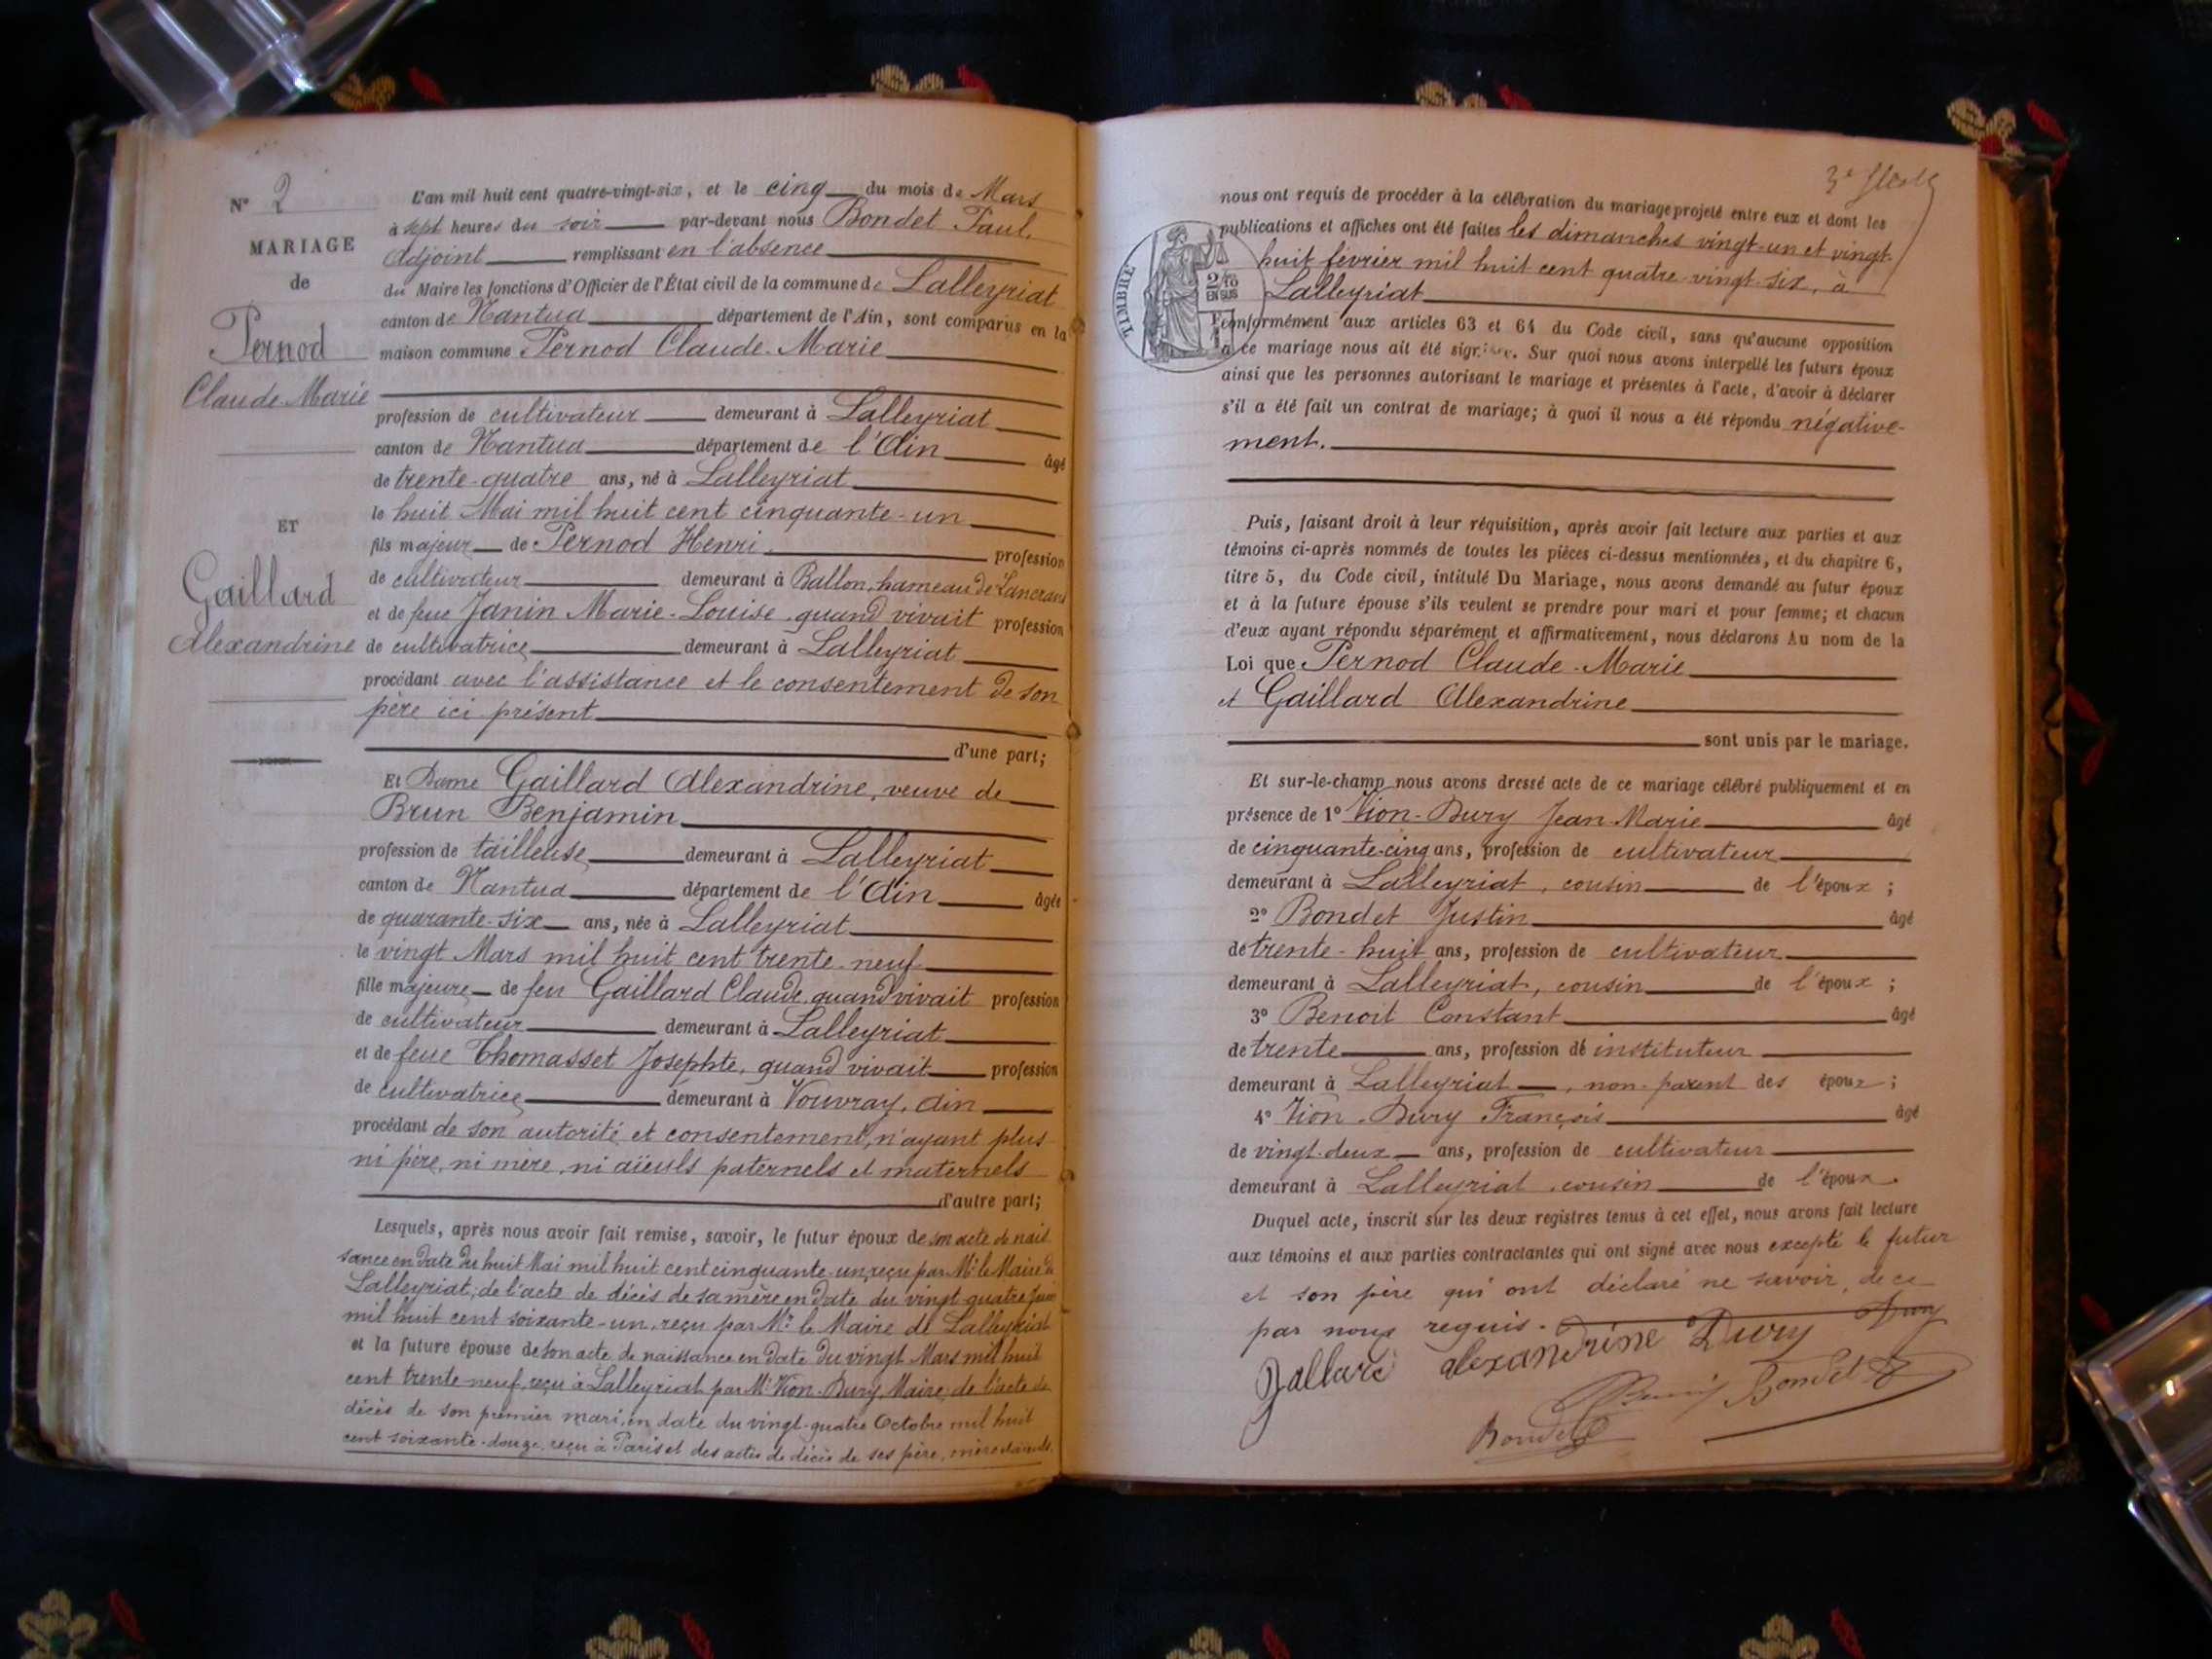 N° 2
MARIAGE
de
Pernod
Claude-Marie
ET
Gaillard
Alexandrine
L'an mil huit cent quatre-vingt-six, et le cinq du mois de Mars
à sept heures du soir par-devant nous Bondet Paul.
Adjoint remplissant en l'absence
du Maire les fonctions d'Officier de l'État civil de la commune de Lalleyriat
canton de Nantua département de l'Ain, sont comparus en la
maison commune Pernod Claude-Marie
profession de cultivateur demeurant à Lalleyriat
canton de Nantua département de l'Ain âgé
de trente-quatre ans, né à Lalleyriat
le huit Mai mil huit cent cinquante-un
fils majeur de Pernod Henri profession
de cultivateur demeurant à Ballon, hameau de Lancrans
et de feue Janin Marie-Louise quand vivait profession
de cultivatrice demeurant à Lalleyriat
procédant avec l'assistance et le consentement de son
père ici présent
d'une part;
Et Dame Gaillard Alexandrine, veuve de
Brun Benjamin
profession de tailleuse demeurant à Lalleyriat
canton de Nantua département de l'Ain âgée
de quarante-six ans, née à Lalleyriat
le vingt Mars mil huit cent trente-neuf
fille majeure de feu Gaillard Claude quand vivait profession
de cultivateur demeurant à Lalleyriat
et de feue Thomasset Josephte, quand vivait profession
de cultivatrice demeurant à Vouvray, Ain
procédant de son autorité et consentement, n'ayant plus
ni père, ni mère, ni aïeuls paternels et maternels
d'autre part;
Lesquels, après nous avoir fait remise, savoir, le futur époux de son acte de nais
sance en date du huit Mai mil huit cent cinquante-un, reçu par Mr le Maire de
Lalleyriat; de l'acte de décès de sa mère en date du vingt-quatre
mil huit cent soixante-un, reçu par Mr le Maire de Lalleyriat
et la future épouse de son acte de naissance en date du vingt Mars mil huit
cent trente-neuf, reçu à Lalleyriat par Mr Vion-Dury, Maire; de l'acte de
décès de son premier mari, en date du vingt-quatre Octobre mil huit
cent soixante-douze, reçu à Paris et des actes de décès de ses père, mère et aïeuls.
nous ont requis de procéder à la célébration du mariage projeté entre eux et dont les
publications et affiches ont été faites les dimanches vingt-un et vingt-
huit février mil huit cent quatre-vingt-six, à
Lalleyriat
TIMBRE
2/10
EN SUS
conformément aux articles 63 et 64 du Code civil, sans qu'aucune opposition
à ce mariage nous ait été signifiée. Sur quoi nous avons interpellé les futurs époux
ainsi que les personnes autorisant le mariage et présentes à l'acte, d'avoir à déclarer
s'il a été fait un contrat de mariage; à quoi il nous a été répondu négative-
ment.
Puis, faisant droit à leur réquisition, après avoir fait lecture aux parties et aux
témoins ci-après nommés de toutes les pièces ci-dessus mentionnées, et du chapitre 6,
titre 5, du Code civil, intitulé Du Mariage, nous avons demandé au futur époux
et à la future épouse s'ils veulent se prendre pour mari et pour femme; et chacun
d'eux ayant répondu séparément et affirmativement, nous déclarons Au nom de la
Loi que Pernod Claude-Marie
et Gaillard Alexandrine
sont unis par le mariage.
Et sur-le-champ nous avons dressé acte de ce mariage célébré publiquement et en
présence de 1° Vion-Dury Jean-Marie âgé
de cinquante-cinq ans, profession de cultivateur
demeurant à Lalleyriat, cousin de l'époux;
2° Bondet Justin âgé
de trente-huit ans, profession de cultivateur
demeurant à Lalleyriat, cousin de l'époux;
3° Benoit Constant âgé
de trente ans, profession de instituteur
demeurant à Lalleyriat, non-parent des époux;
4° Vion-Dury François âgé
de vingt-deux ans, profession de cultivateur
demeurant à Lalleyriat, cousin de l'époux.
Duquel acte, inscrit sur les deux registres tenus à cet effet, nous avons fait lecture
aux témoins et aux parties contractantes qui ont signé avec nous excepté le futur
et son père qui ont déclaré ne savoir, de ce
par nous requis.
Dury
Gallard alexandrine Dury
Bondet
Bondet